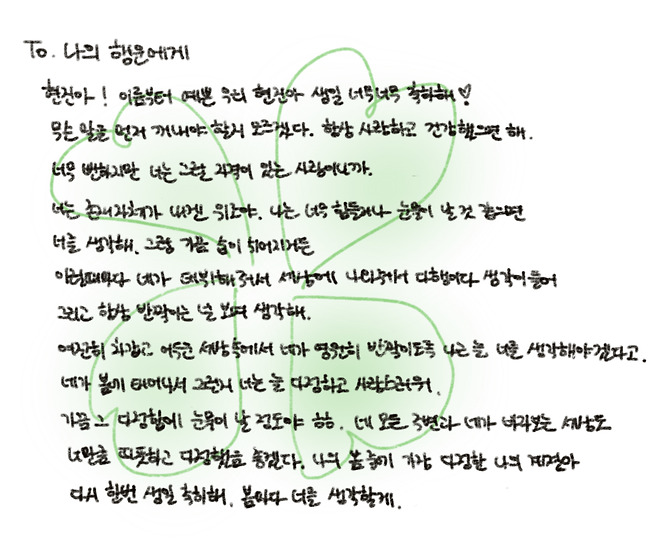 To. 나의 행운에게
현진아! 이름부터 예쁜 우리 현진아 생일 너무너무 축하해♡
무슨 말을 먼저 꺼내야 할지 모르겠다. 항상 사랑하고 건강했으면 해.
너무 뻔하지만 너는 그럴 자격이 있는 사람이니까.
너는 존재자체가 내겐 위로야. 나는 너무 힘들거나 눈물이 날 것 같으면
너를 생각해. 그럼 가끔 숨이 쉬어지거든
이럴때마다 네가 태어나줘서 세상에 나타나줘서 다행이다 생각이들어
그리고 항상 반짝이는 널 보며 생각해.
여전히 차갑고 어두운 세상속에서 네가 영원히 반짝이도록 나는 늘 너를 생각해야겠다고.
네가 봄에 태어나서 그런지 너는 늘 다정하고 사랑스러워.
가끔 그 다정함에 눈물이 날 정도야 ㅎㅎ. 네 모든 주변과 네가 바라보는 세상도
너만큼 따뜻하고 다정했음 좋겠다. 나의 봄 중에 가장 다정한 나의 계절아
다시 한번 생일 축하해. 봄마다 너를 생각할게.